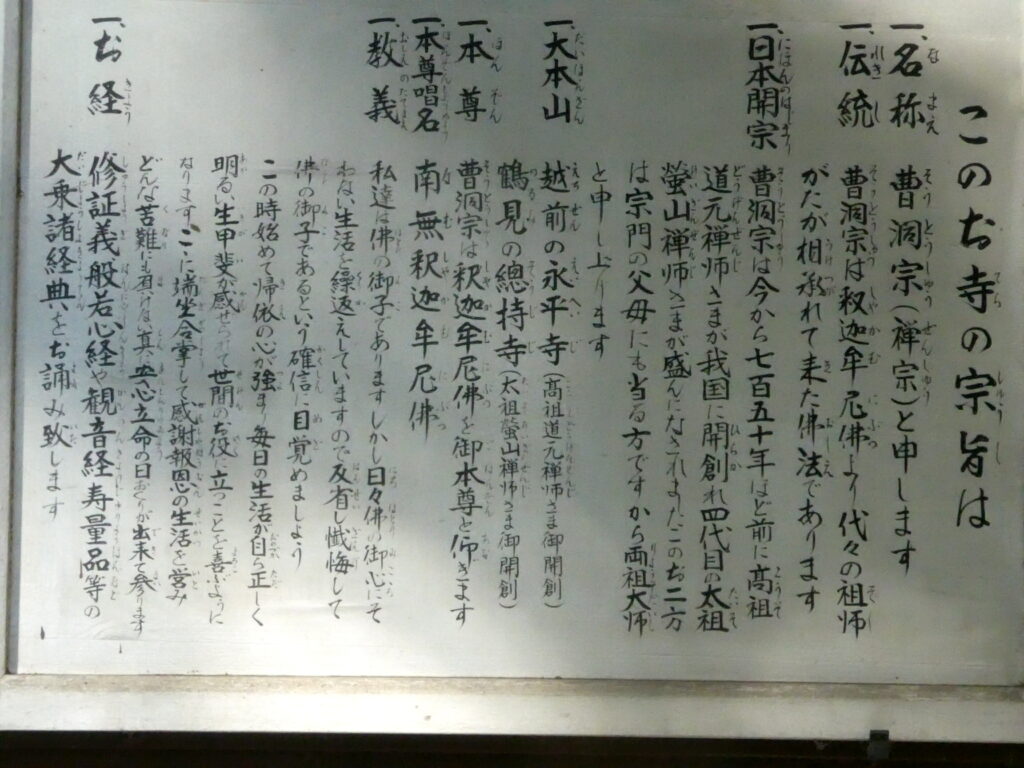 このお寺の宗旨は
一、名称 曹洞宗(禅宗)と申します
一、伝統 曹洞宗は釈迦牟尼佛より代々の祖師
がたが相承れて来た佛法であります
一、日本開宗 曹洞宗は今から七百五十年ほど前に高祖
道元禅师さまが我国に開創れ四代目の太祖
螢山禅师さまが盛んになされましたこのお二方
は宗門の父母にも当る方ですから両祖大师
と申し上ります
一、大本山 越前の永平寺(高祖道元禅师さま御開創)
鶴見の總持寺(太祖螢山禅师さま御開創)
一、本尊 曹洞宗は釈迦牟尼佛を御本尊と仰ぎます
一、本尊唱名 南無釈迦牟尼佛
一、教義 私達は佛の御子でありますしかし日々佛の御心にそ
わない生活を繰返えしていますので反省し懺悔して
佛の御子であるという確信に目覚めましよう
この時始めて帰依の心が強まり毎日の生活が自ら正しく
明るい生甲斐が感ぜられて世間のお役に立つことを喜ぶように
なりますここに端坐合掌して感謝報恩の生活を営み
どんな苦難にも負けない真の安心立命の日おくりが出来て参ります
一、お経 修証義般若心経や観音経寿量品等の
大乗諸経典をお誦み致します